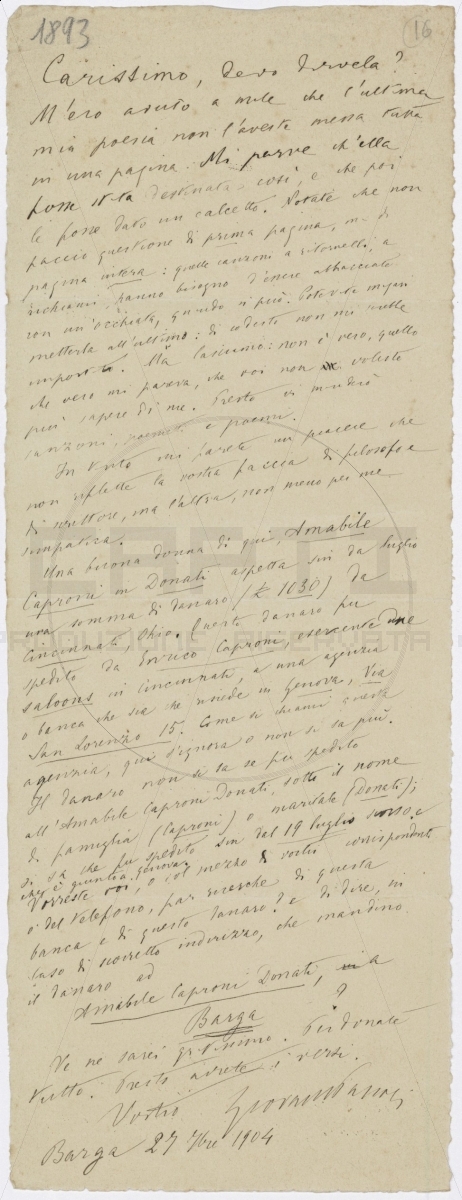 1893
16
Carissimo, devo dirvela?
M'ero avuto a male che l'ultima
mia poesia non l'aveste messa tutta
in una pagina. Mi parve ch'ella
fosse stata destinata così, e che poi
le fosse dato un calcetto. Notate che non
faccio questione di prima pagina, ma di
pagina intera: quelle canzoni a ritornelli, a
richiami, hanno bisogno d'essere abbracciate
con un'occhiata, quando si può. Potevate magari
metterla all'ultimo: di codesto non mi
importa. Ma lasciamo: non è vero, quello
che vero mi pareva, che voi non voleste
più sapere di me. Presto vi manderò
canzoni, poemetti e poemi.
In Vinto mi parete un piacere che
non riflette la vostra faccia di filosofo e
di scrittore, ma l'altra, non meno per me
simpatica.
Una buona donna di qui, Amabile
Caproni in Donati aspetta sin da luglio
una somma di danaro (£ 1030) da
Cincinnati, Ohio. Questo danaro fu
spedito da Enrico Caproni, esercente due
saloons in Cincinnati, a una agenzia
o banca che sia che risiede in Genova, Via
San Lorenzo 15. Come si chiami questa
agenzia, qui s'ignora o non si sa più.
Il danaro non si sa se fu spedito
all'Amabile Caproni Donati, sotto il nome
di famiglia (Caproni) o maritale (Donati);
si sa che fu spedito sin dal 19 luglio scorso e
che è giunto a Genova.
Vorreste voi, o col mezzo di vostri corrispondenti
o del telefono, far ricerche di questa
banca e di questo danaro? e di dire, in
caso di scorretto indirizzo, che mandino
il danaro ad
Amabile Caproni Donati, a
Barga?
Ve ne sarei gratissimo. Perdonate
tutto. Presto avrete i versi.
Vostro Giovanni Pascoli
Barga 27 7bre 1904